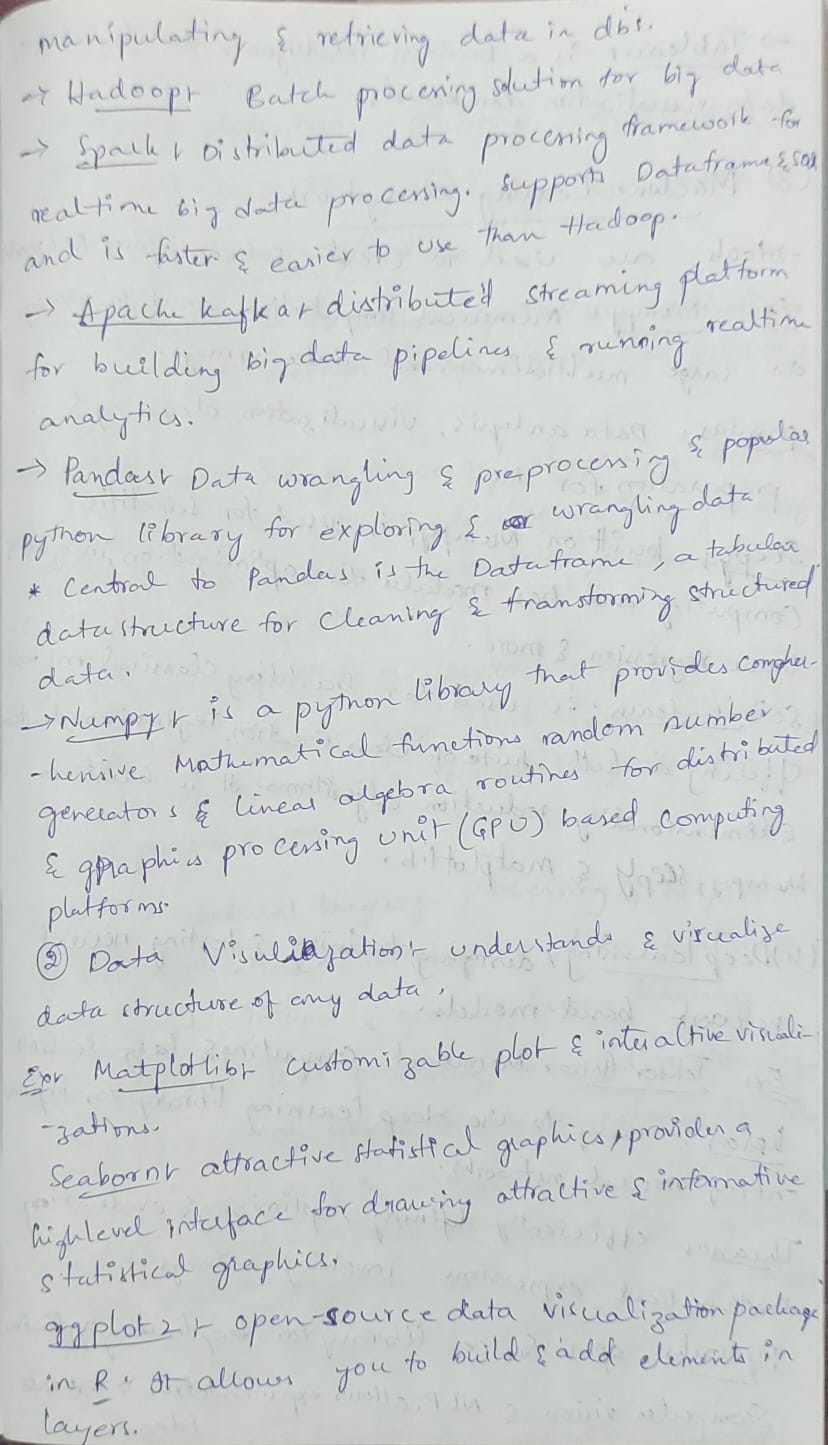 manipulating & retrieving data in dbs.
→ Hadoop:- Batch processing solution for big data
→ Spark:- Distributed data processing framework for
realtime big data processing. supports Dataframe, & SQL
and is faster & easier to use than Hadoop.
→ Apache kafka:- distributed streaming platform
for building big data pipelines & running realtime
analytics.
→ Pandas:- Data wrangling & preprocessing & popular
python library for exploring & wrangling data
* Central to Pandas is the Dataframe, a tabular
data structure for Cleaning & transforming structured
data.
→ Numpy:- is a python library that provides compher-
-hensive Mathematical functions random number
generators & linear algebra routines for distributed
& graphics processing unit (GPU) based computing
platforms.
② Data Visuliazation:- understands & visualize
data structure of any data.
Ex:- Matplotlib:- Customizable plot & interactive visuali-
-zations.
Seaborn:- attractive statistical graphics, provides a
highlevel interface for drawing attractive & informative
statistical graphics.
ggplot2:- open-source data visualization package
in R. It allows you to build & add elements in
layers.